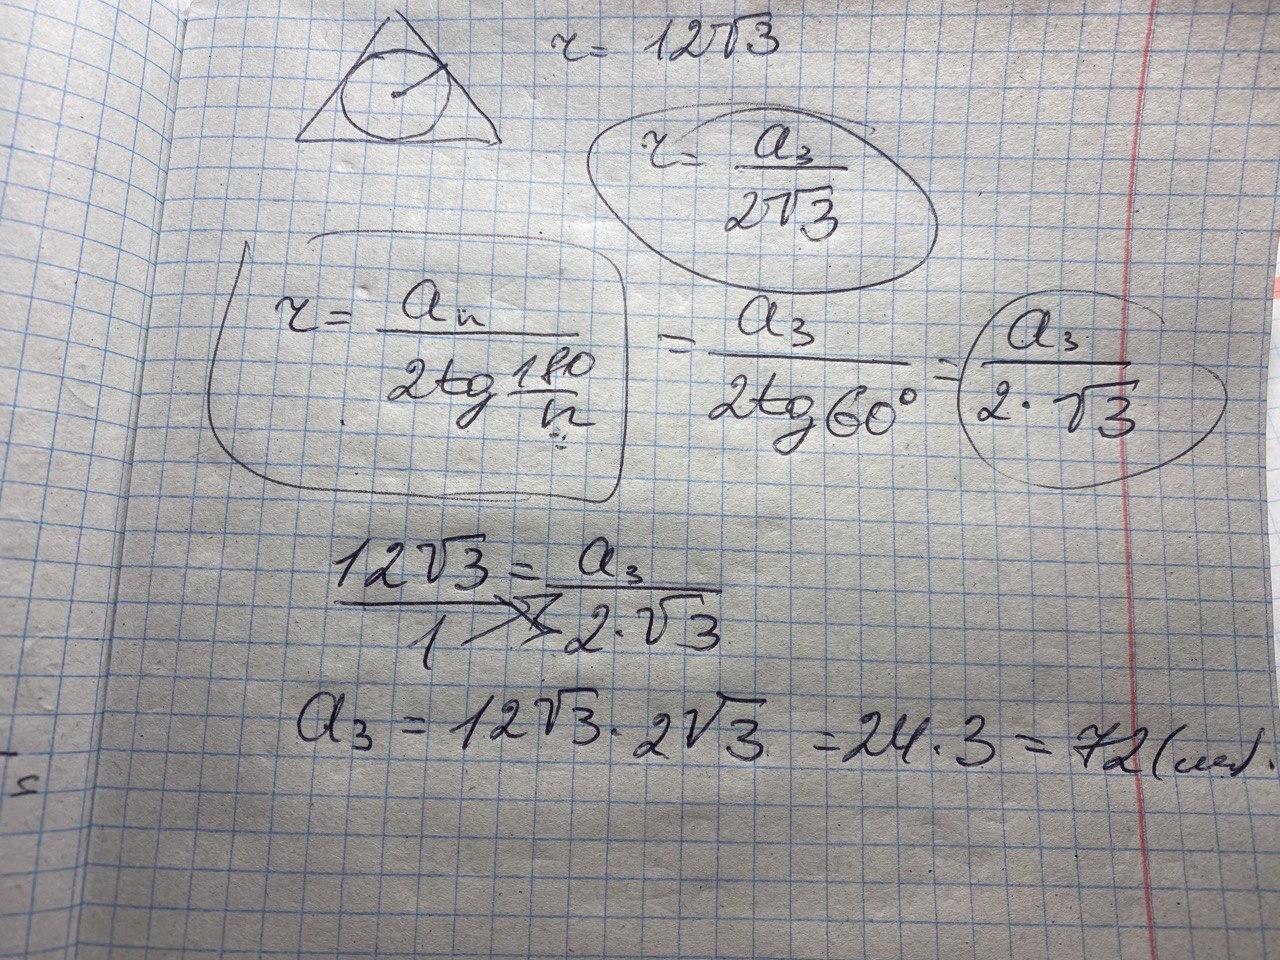 r = 12√3
r = a₃ / 2√3
r = aₙ / 2tg 180/n = a₃ / 2tg 60° = a₃ / 2·√3
12√3 / 1 = a₃ / 2·√3
a₃ = 12√3 · 2√3 = 24·3 = 72